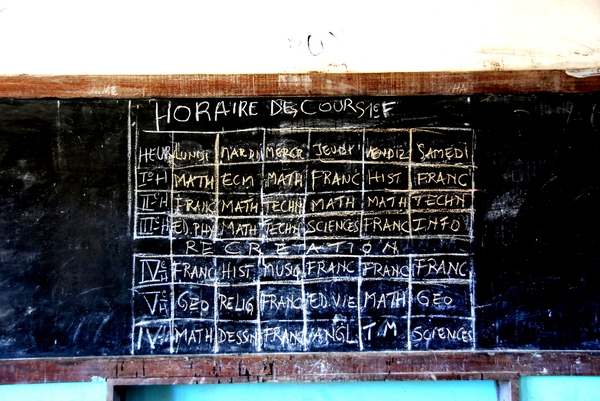 HORAIRE DES COURS 1èF
HEUR LUNDI MARDI MERCR JEUDI VENDR SAMEDI
IèH MATH ECM MATH FRANC HIST FRANC
IIèH FRANC MATH TECHN MATH MATH TECHN
IIIèH ED.PHY MATH TECHN SCIENCES FRANC INFO
RECREATION
IVèH FRANC HIST MUSIQ FRANC FRANC FRANC
VèH GEO RELIG FRANC ED.VIE MATH GEO
MATH DESSIN FRANC ANGL T.M SCIENCES